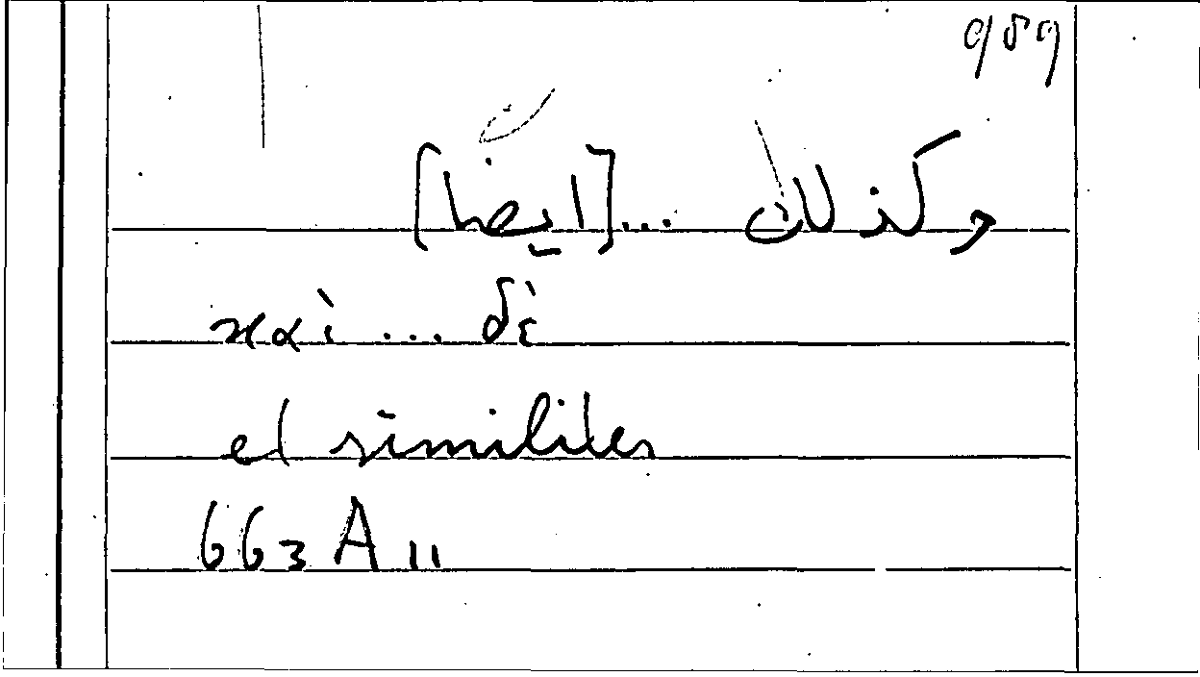 وكذلك ...[ايضا]
καὶ ... δὲ
et similiter
663 A 11